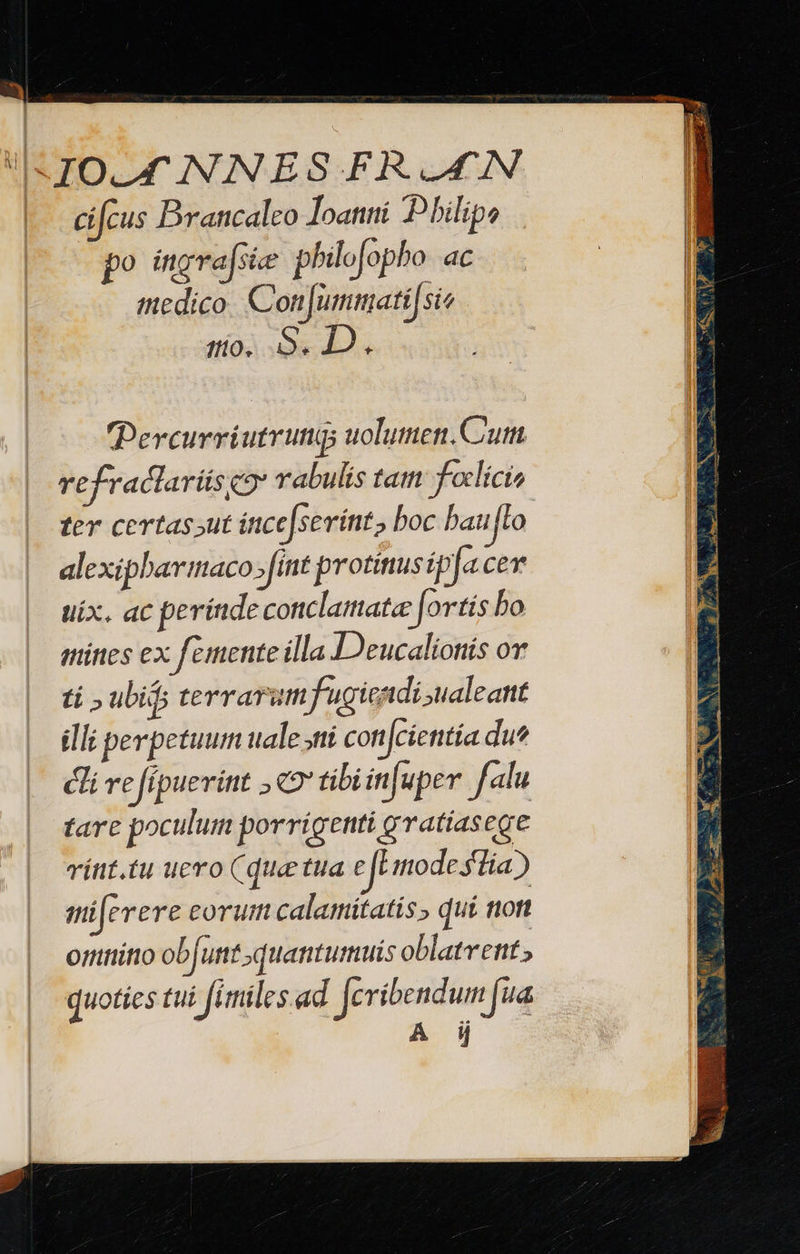 IOANNES FRAN
ciſcus Brancaleo Ioanni Philip⸗
po ingraſsiæ philoſopho ac
medico Conſummatiſsi⸗
mo. S. D.
Percurri utrunq; uolumen. Cum
refractariis, & rabulis tam fœlici⸗
ter certas, ut inceſserint, hoc hauſto
alexipharmaco, ſint protinus ipſa cer
uix. ac perinde conclamatæ ſortis ho
mines ex ſemente illa Deucalionis or
ti, ubiq; terrarum fugiendi, ualeant
illi perpetuum uale, ni conſcientia du⸗
cti reſipuerint, & tibi inſuper ſalu
tare poculum porrigenti gratias ege
rint. tu uero (quæ tua eſt modestia)
miſerere eorum calamitatis, qui non
omnino obſunt, quantumuis oblatrent,
quoties tui ſimiles ad ſcribendum ſua
A ij